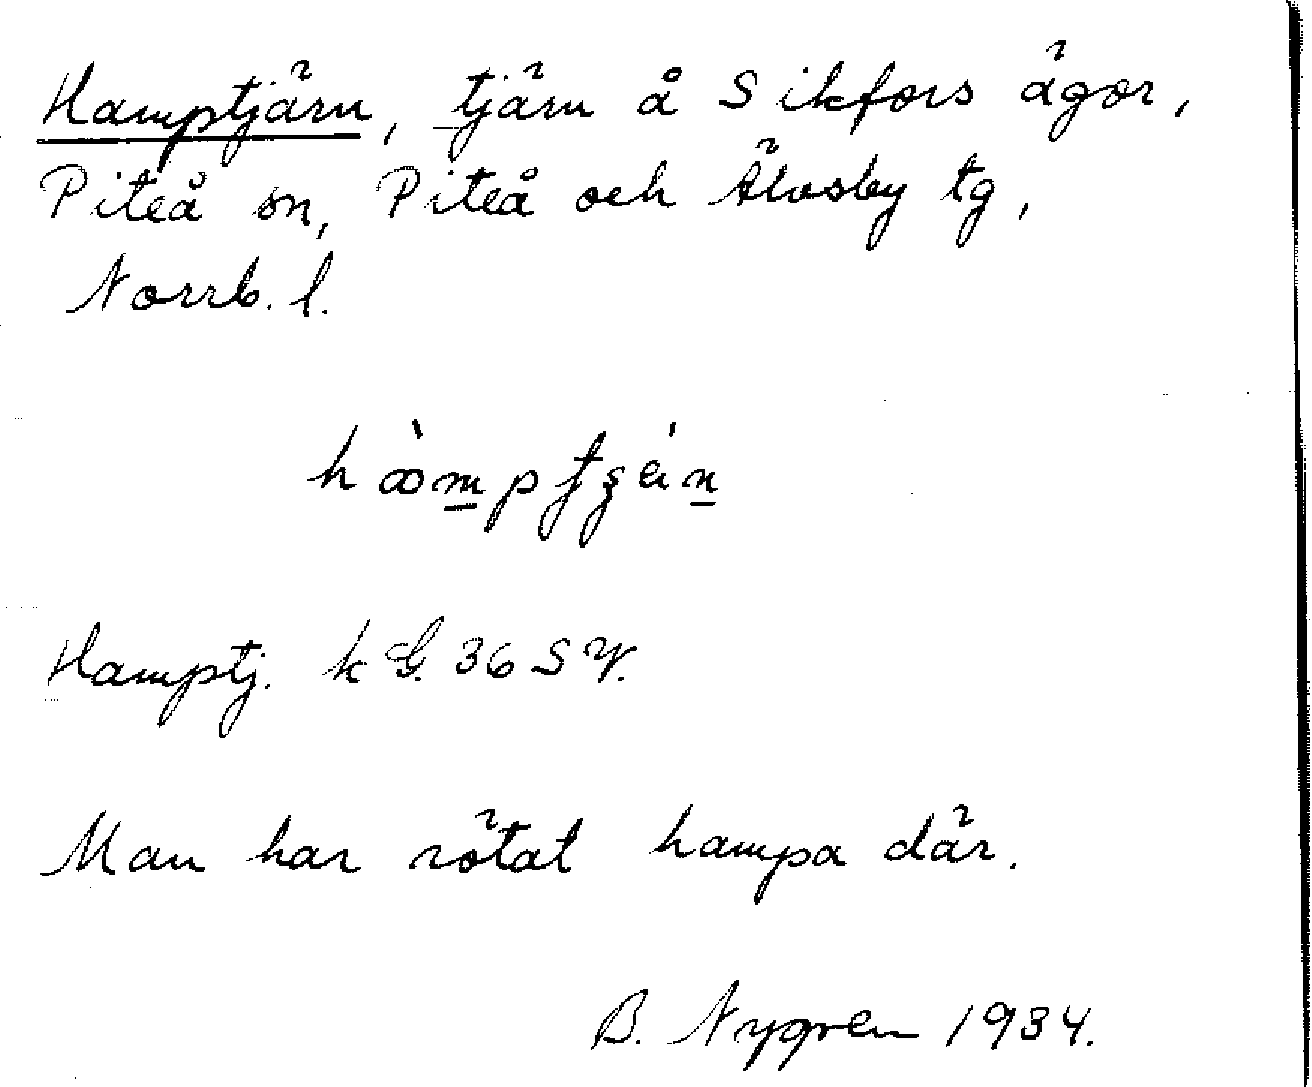 Hamptjärn, tjärn å Sikfors ägor,
Piteå sn, Piteå och Älvsby tg,
Norrb. l.
Hamptj. k G. 36 SV.
Man har rötat hampa där.
B. Nygren 1934.